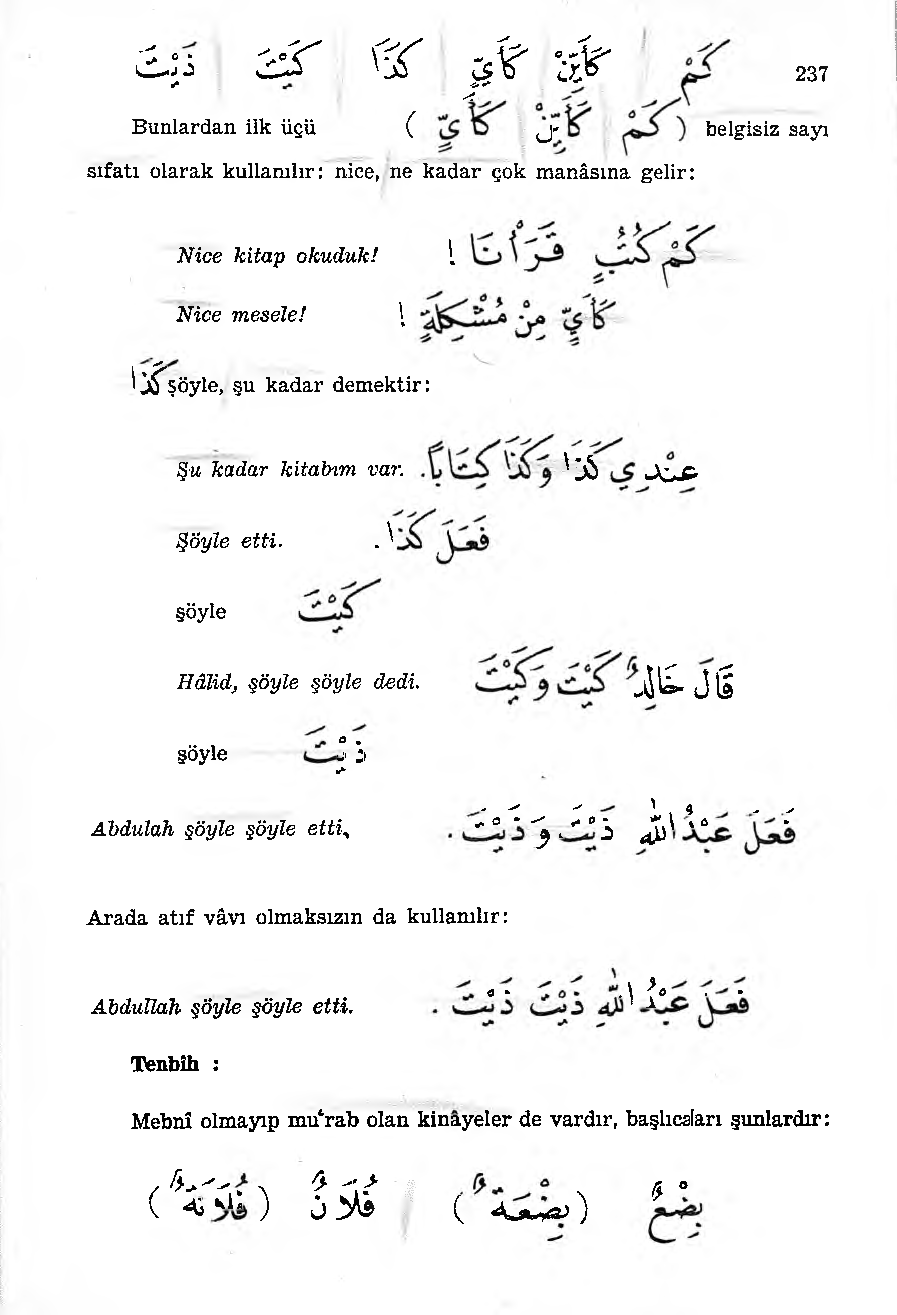 237
كَمْ كَأَيِّنْ كَأَيٍّ كَذَا كَيْتَ ذَيْتَ
Bunlardan ilk üçü ( كَمْ كَأَيِّنْ كَأَيٍّ ) belgisiz sayı
sıfatı olarak kullanılır: nice, ne kadar çok manâsına gelir:
Nice kitap okuduk! كَمْ كُتُبٍ قَرَأْنَا !
Nice mesele! كَأَيٍّ مِنْ مُشْكِلَةٍ !
كَذَا şöyle, şu kadar demektir:
Şu kadar kitabım var. عِنْدِي كَذَا وَكَذَا كِتَاباً.
Şöyle etti. فَعَلَ كَذَا.
şöyle كَيْتَ
Hâlid, şöyle şöyle dedi. قَالَ خَالِدٌ كَيْتَ وَكَيْتَ
şöyle ذَيْتَ
Abdulah şöyle şöyle etti, فَعَلَ عَبْدُ اللهِ ذَيْتَ وَ ذَيْتَ .
Arada atıf vâvı olmaksızın da kullanılır:
Abdullah şöyle şöyle etti. فَعَلَ عَبْدُ اللهِ ذَيْتَ ذَيْتَ .
Tenbîh :
Mebnî olmayıp mu‘rab olan kinâyeler de vardır, başlıcaları şunlardır:
بِضْعٌ (بِضْعَةٌ) فُلَانٌ (فُلَانَةٌ)